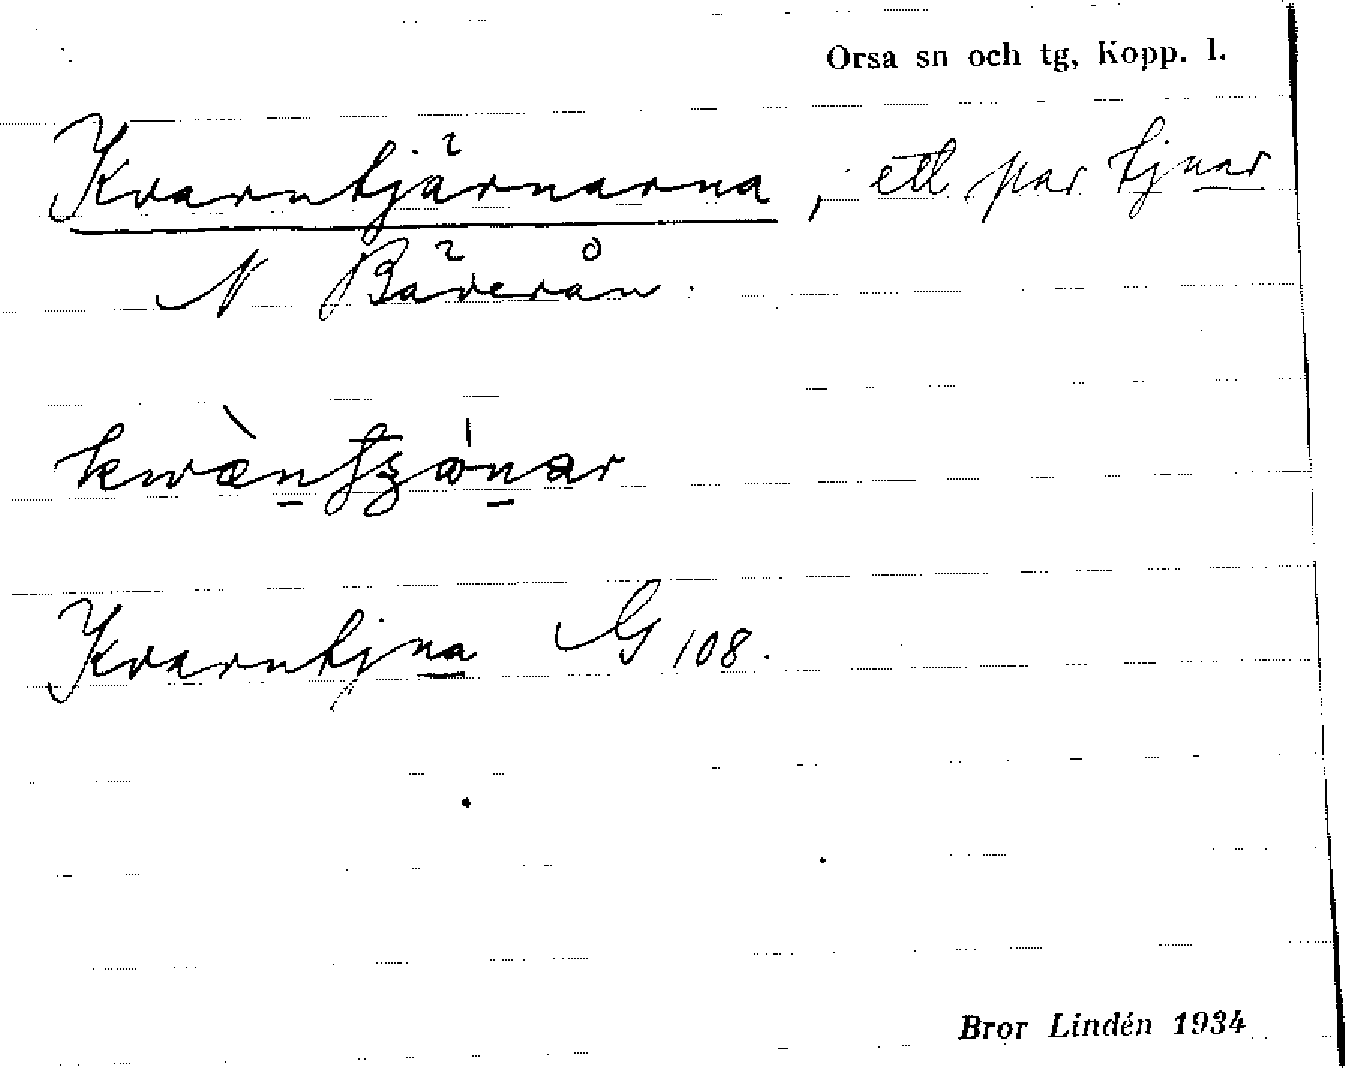 Orsa sn och tg, Kopp. l.
Kvarntjärnarna, ett par tjnar
N Bäverån.
Kvarntjna G 108.
Bror Lindén 1934